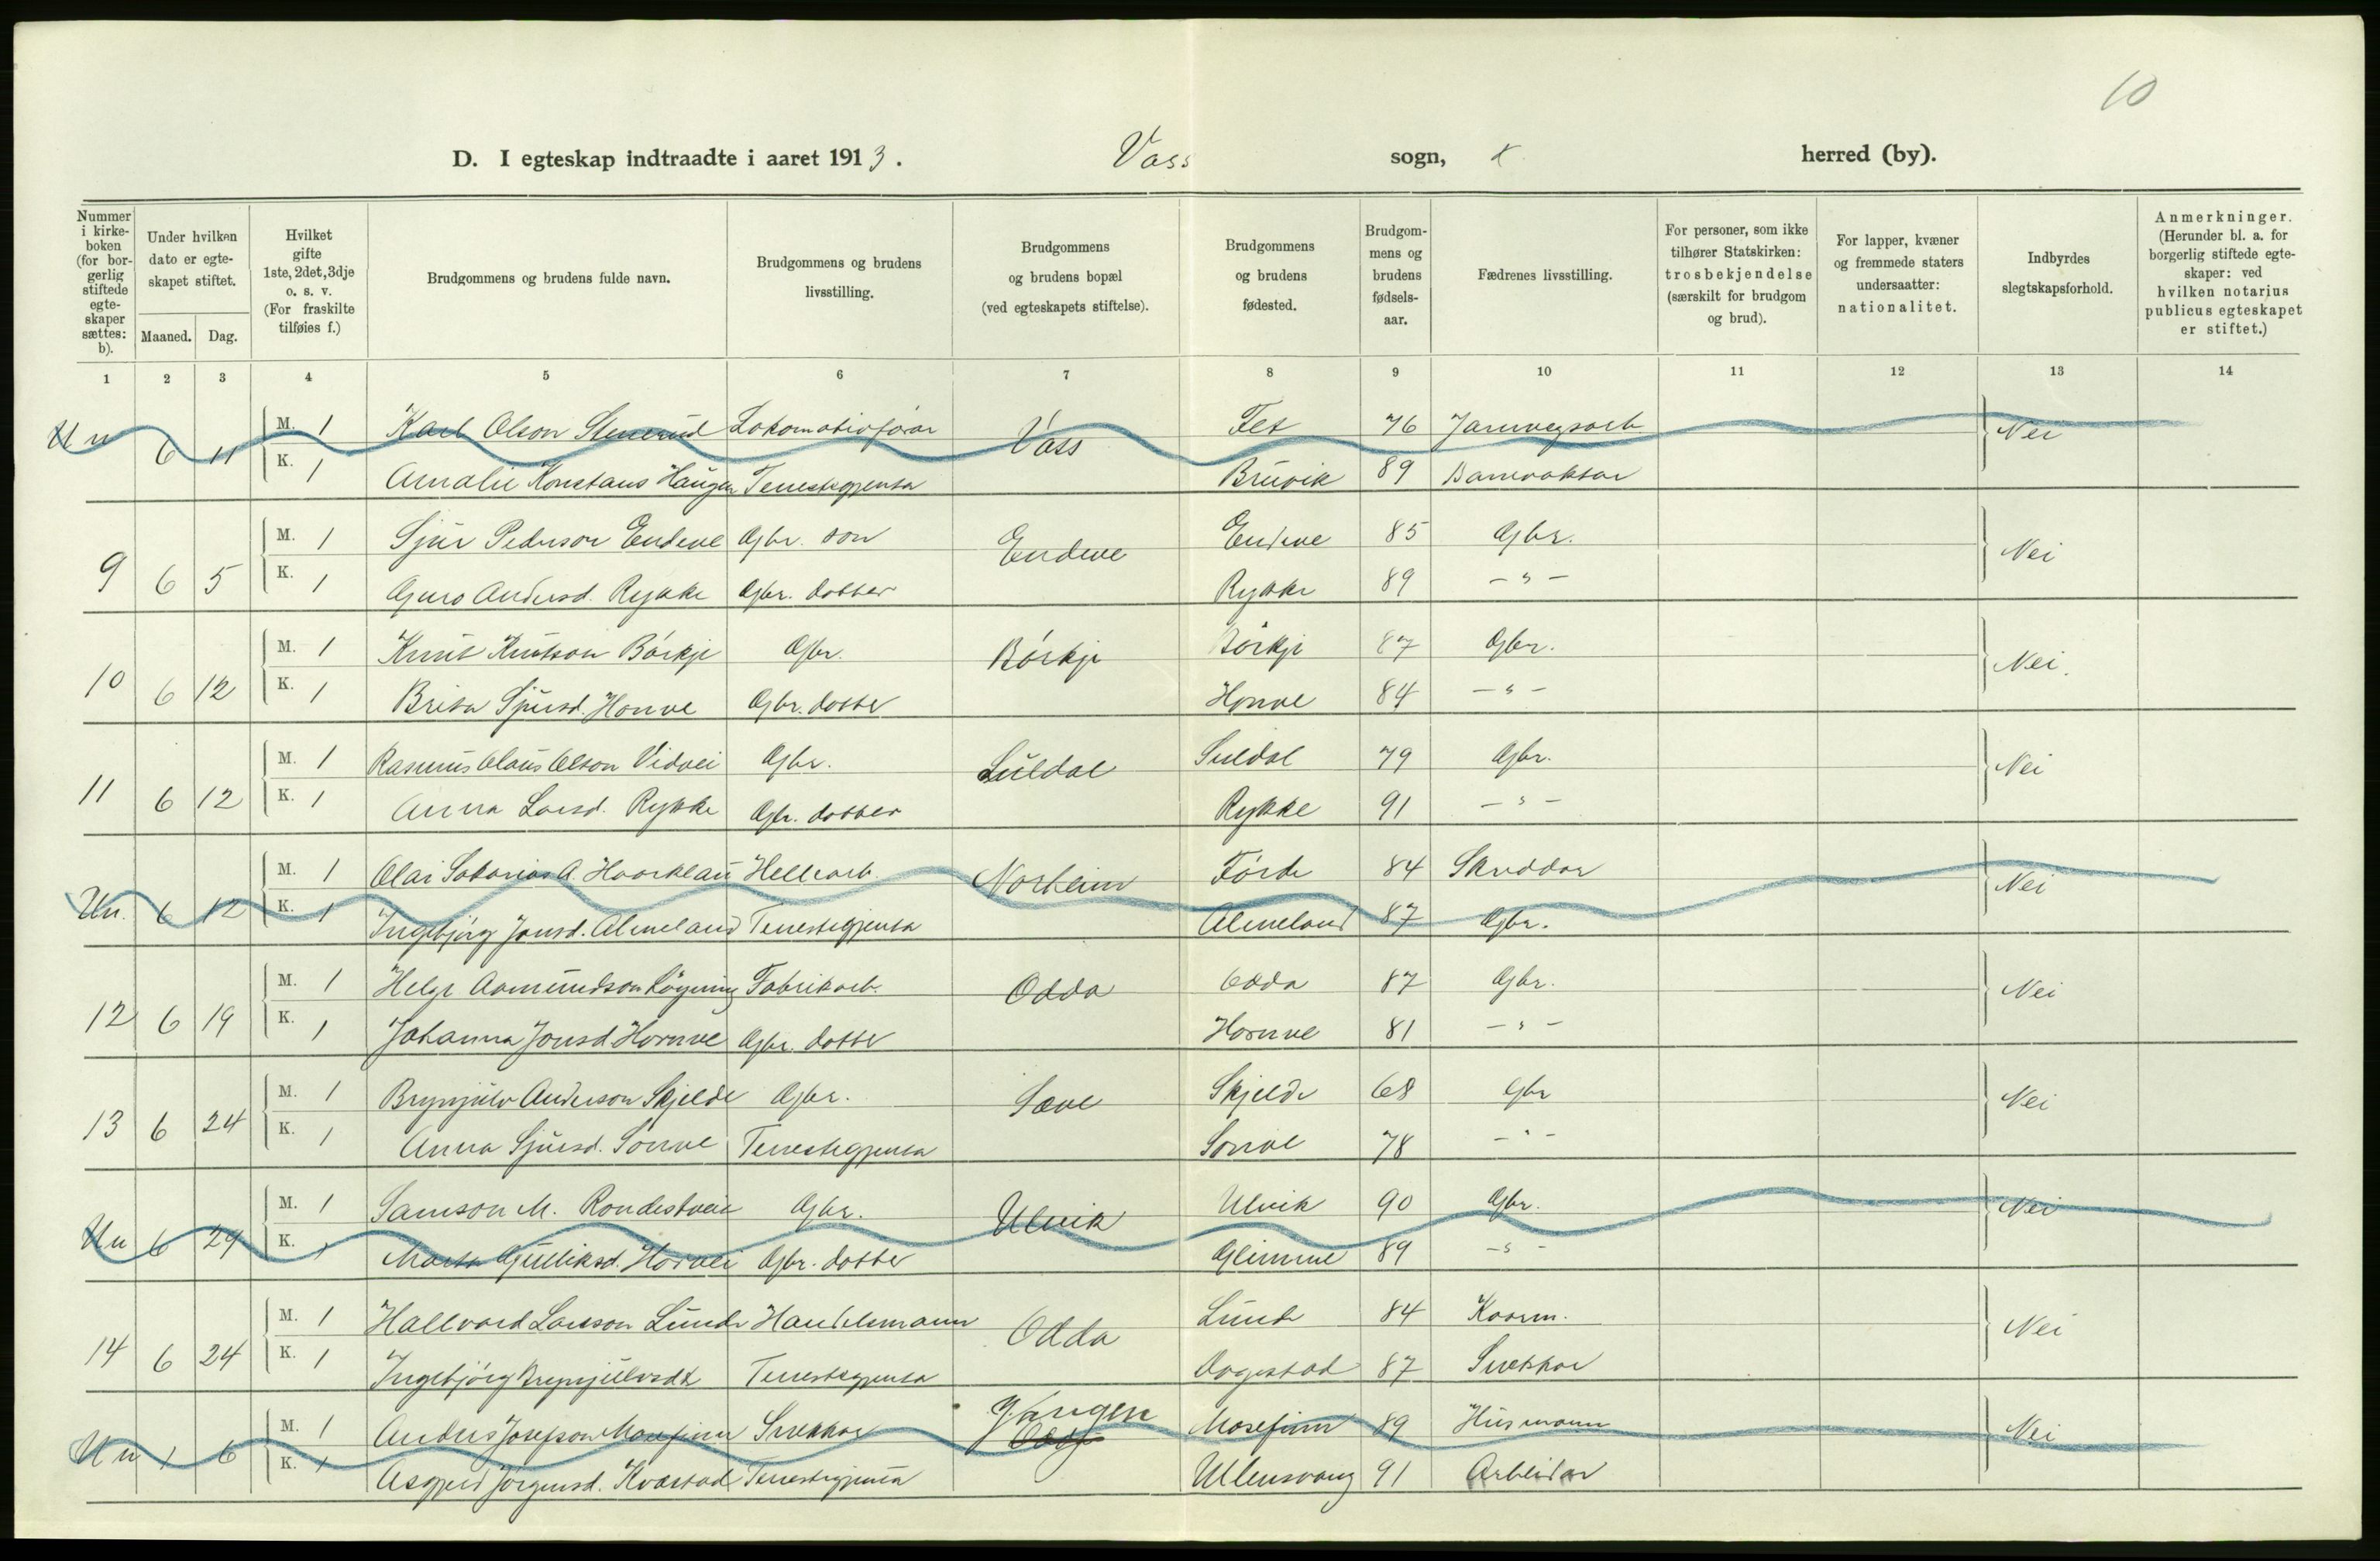 10
D. I egteskap indtraadte i aaret 1913. Vass sogn, x herred (by).
Nummer i kirkeboken (for borgerlig stiftede egteskaper sættes: b).
Under hvilken dato er egteskapet stiftet.
Maaned. Dag.
Hvilket gifte 1ste, 2det, 3dje o. s. v. (For fraskilte tilføies f.)
Brudgommens og brudens fulde navn.
Brudgommens og brudens livsstilling.
Brudgommens og brudens bopæl (ved egteskapets stiftelse).
Brudgommens og brudens fødested.
Brudgommens og brudens fødselsaar.
Fædrenes livsstilling.
For personer, som ikke tilhører Statskirken: trosbekjendelse (særskilt for brudgom og brud).
For lapper, kvæner og fremmede staters undersaatter: nationalitet.
Indbyrdes slegtskapsforhold.
Anmerkninger. (Herunder bl. a. for borgerlig stiftede egteskaper: ved hvilken notarius publicus egteskapet er stiftet.)
1 2 3 4 5 6 7 8 9 10 11 12 13 14
M. 1 Karl Olson Stenerud Lokomotivførar Vass Fet 76 Jarnvegsarb. Nei
Un 6 11 K. 1 Amalie Konstans Haugen Tenestegjenta Bruvik 89 Banevaktar
M. 1 Sjur Pederson Endeve Gbr. son Endeve Endeve 85 Gbr. Nei
9 6 5 K. 1 Guro Andersd. Rykke Gbr. dotter Rykke 89 - " -
M. 1 Knut Knutson Børkje Gbr. Børkje Børkje 87 Gbr. Nei.
10 6 12 K. 1 Brita Sjursd. Honve Gbr. dotter Honve 84 - " -
M. 1 Rasmus Olaus Olson Vidvei Gbr. Suldal Suldal 79 Gbr. Nei
11 6 12 K. 1 Anna Larsd. Rykke Gbr. dotter Rykke 91 - " -
M. 1 Olai Sakarias A. Haarklau Hellearb. Norheim Førde 84 Skreddar Nei
Un. 6 12 K. 1 Ingebjørg Jonsd. Almeland Tenestegjenta Almeland 87 Gbr.
M. 1 Helge Aamundson Løyning Fabrikarb. Odda Odda 87 Gbr. Nei
12 6 19 K. 1 Johanna Jonsd. Hornve Gbr. dotter Hornve 81 - " -
M. 1 Brynjulv Anderson Skjelde Gbr. Sæve Skjelde 68 Gbr Nei
13 6 24 K. 1 Anna Sjursd. Sonve Tenestegjenta Sonve 78 - " -
M. 1 Samson M. Rondestveit Gbr. Ulvik Ulvik 90 Gbr. Nei
Un 6 29 K. 1 Marta Gulliksd. Horvei Gbr. dotter Glimme 89 - " -
M. 1 Hallvard Larsson Lunde Handelsmann Odda Lunde 84 Kaarm. Nei
14 6 24 K. 1 Ingebjørg Brynjulvsdt Tenestegjenta Dagestad 87 Snekkar
M. 1 Anders Josefson Mosefinn Snekkar Vangen Mosefinn 89 Husmann Nei
Un 1 6 K. 1 Asgjerd Jørgensd. Kvæstad Tenestegjenta Ullensvang 91 Arbeidar